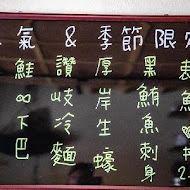 氣 & 季節限
黑鮪魚刺身
厚岸生蠔
讚岐冷麵
鮭∞下巴